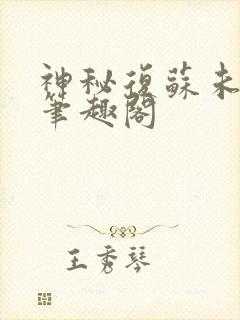 神秘復蘇未
筆趣閣
王秀琴